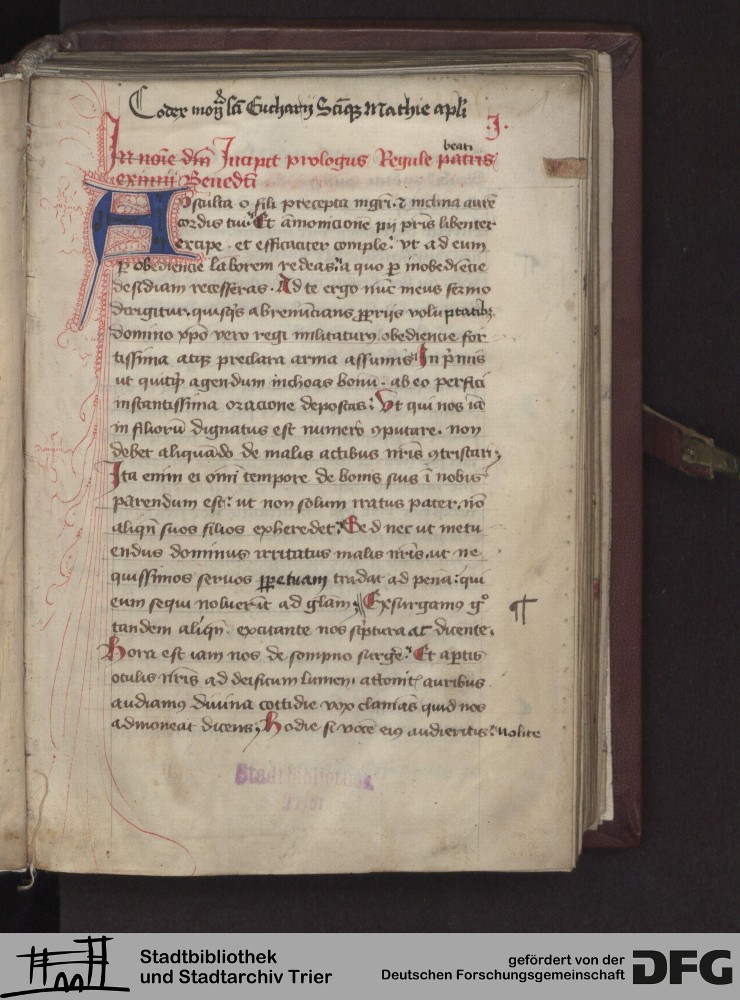 Codex mon sci Eucharij Sciq Mathie apli
J.
In noie dni Incipit prologus Regule patris
beati
eximij Benedci
Asculta o fili precepta mgri. ⁊ inclina aure
cordis tui. Et amonicione pij pris libenter
excipe . et efficaciter comple. vt ad eum
p obediencie laborem redeas. a quo p inobediecie
desidiam recesseras . Ad te ergo nuc meus sermo
dirigitur. quisqs abrenuncians pprijs voluptatibz
domino xpo vero regi militaturus. obediencie for
tissima atqz preclara arma assumis. In pmis
ut quitqd agendum inchoas bonu . ab eo perfici
instantissima oracione deposcas. Vt qui nos ia
in filioru dignatus est numero 9putare . non
debet aliquado de malis actibus nris 9tristari
Ita enim ei omi tempore de bonis suis i nobis
parendum est. ut non solum iratus pater. no
aliqn suos filios exheredet. Sed nec ut metu
endus dominus irritatus malis nris. ut ne
quissimos seruos ppetuam tradat ad pena. qui
eum sequi noluerit ad glam. Exsurgam9 g°
tandem aliqn . excitante nos scptura ac dicente.
¶
Hora est iam nos de sompno surge. Et aptis
oculis nris ad deificum lumen. attonit auribus
audiam9 diuina cottidie vox clamas quid nos
admoneat dicens. Hodie si voce ei9 audieritis. Nolite
Stadtbibliothek
Trier
Stadtbibliothek
und Stadtarchiv Trier
gefördert von der
Deutschen Forschungsgemeinschaft
DFG